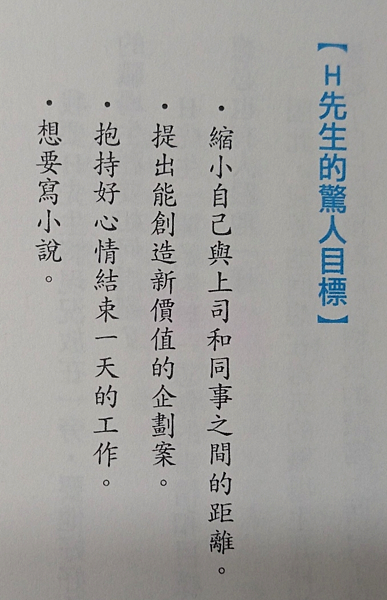 【H先生的驚人目標】
・縮小自己與上司和同事之間的距離。
・提出能創造新價值的企劃案。
・抱持好心情結束一天的工作。
・想要寫小說。